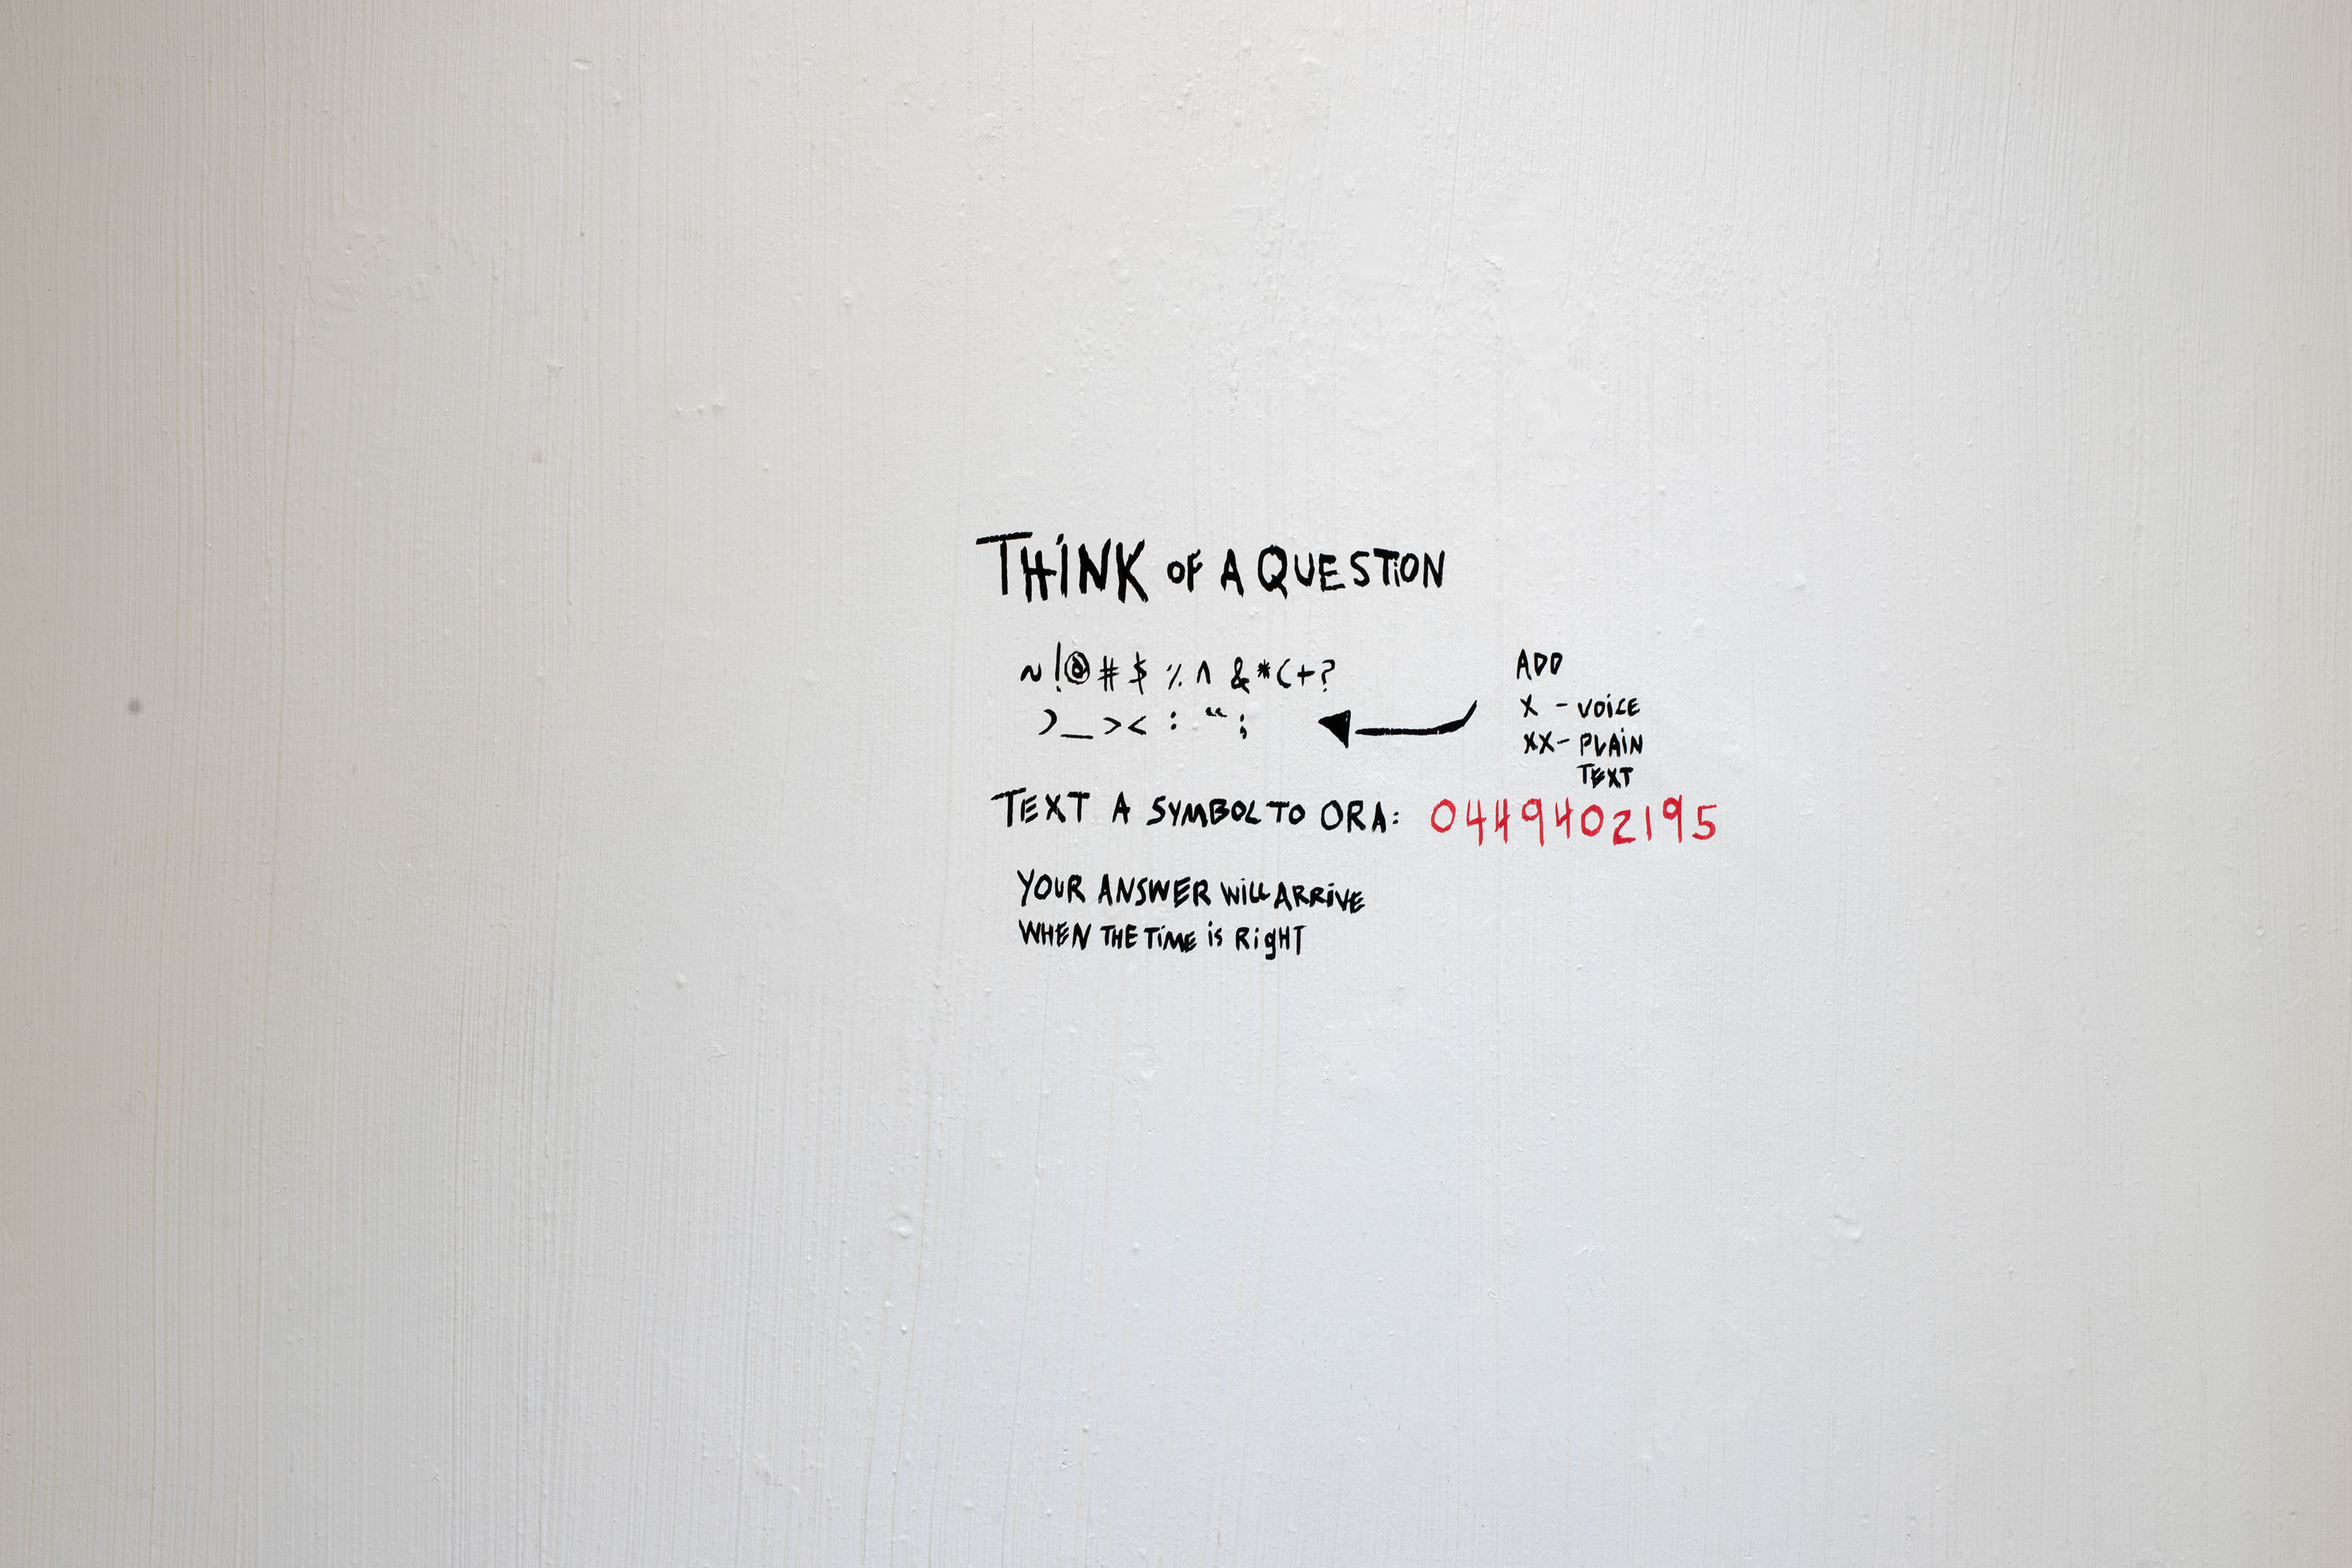 THINK OF A QUESTION
~!@#$%^&*(+?
)_><:“;
ADD
X - VOICE
XX - PLAIN
TEXT
TEXT A SYMBOL TO ORA: 0449402195
YOUR ANSWER WILL ARRIVE
WHEN THE TIME IS RIGHT